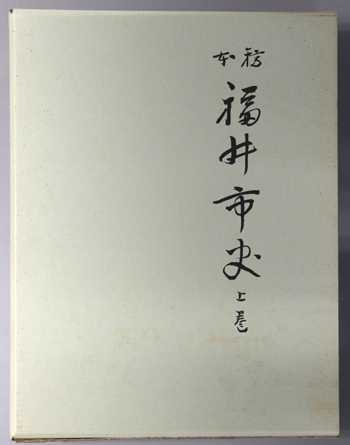 稿本
福井市史
上巻